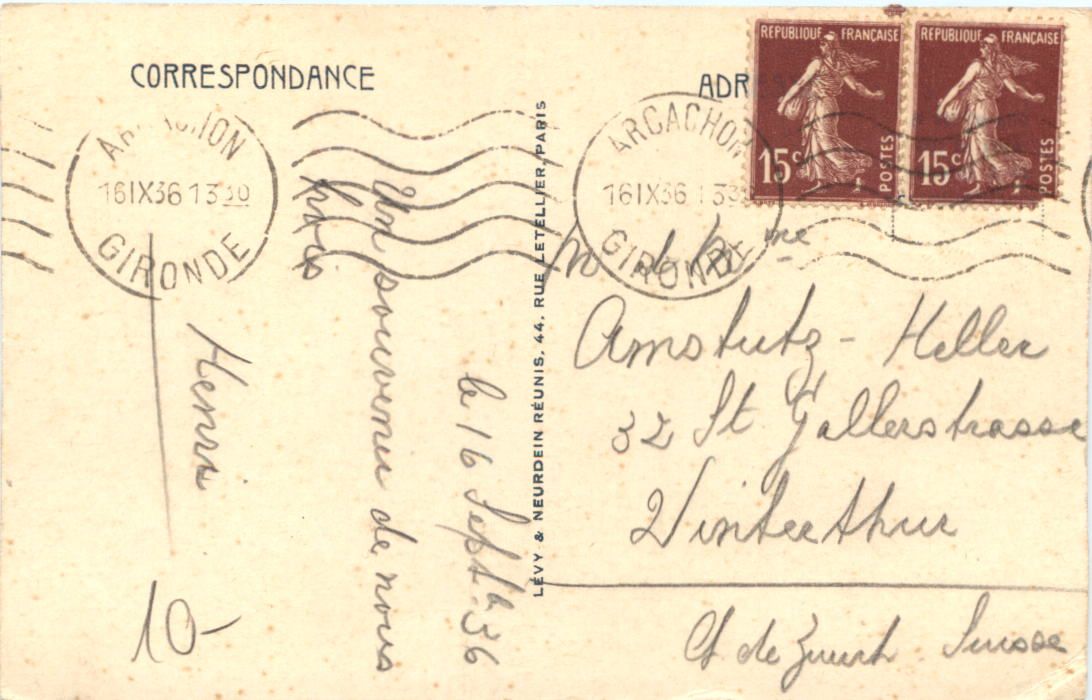 CORRESPONDANCE
ARCACHON
16IX36 1330
GIRONDE
le 16 Sept. 36
Un souvenir de nous
trois
Henri
10-
LÉVY & NEURDEIN RÉUNIS, 44, RUE LETELLIER, PARIS
ADR
REPUBLIQUE FRANÇAISE
15c
POSTES
REPUBLIQUE FRANÇAISE
15c
POSTES
ARCACHON
16IX36 1330
GIRONDE
M. et Mme
Amstutz - Heller
32 St Gallerstrasse
Winterthur
Ct de Zurich Suisse